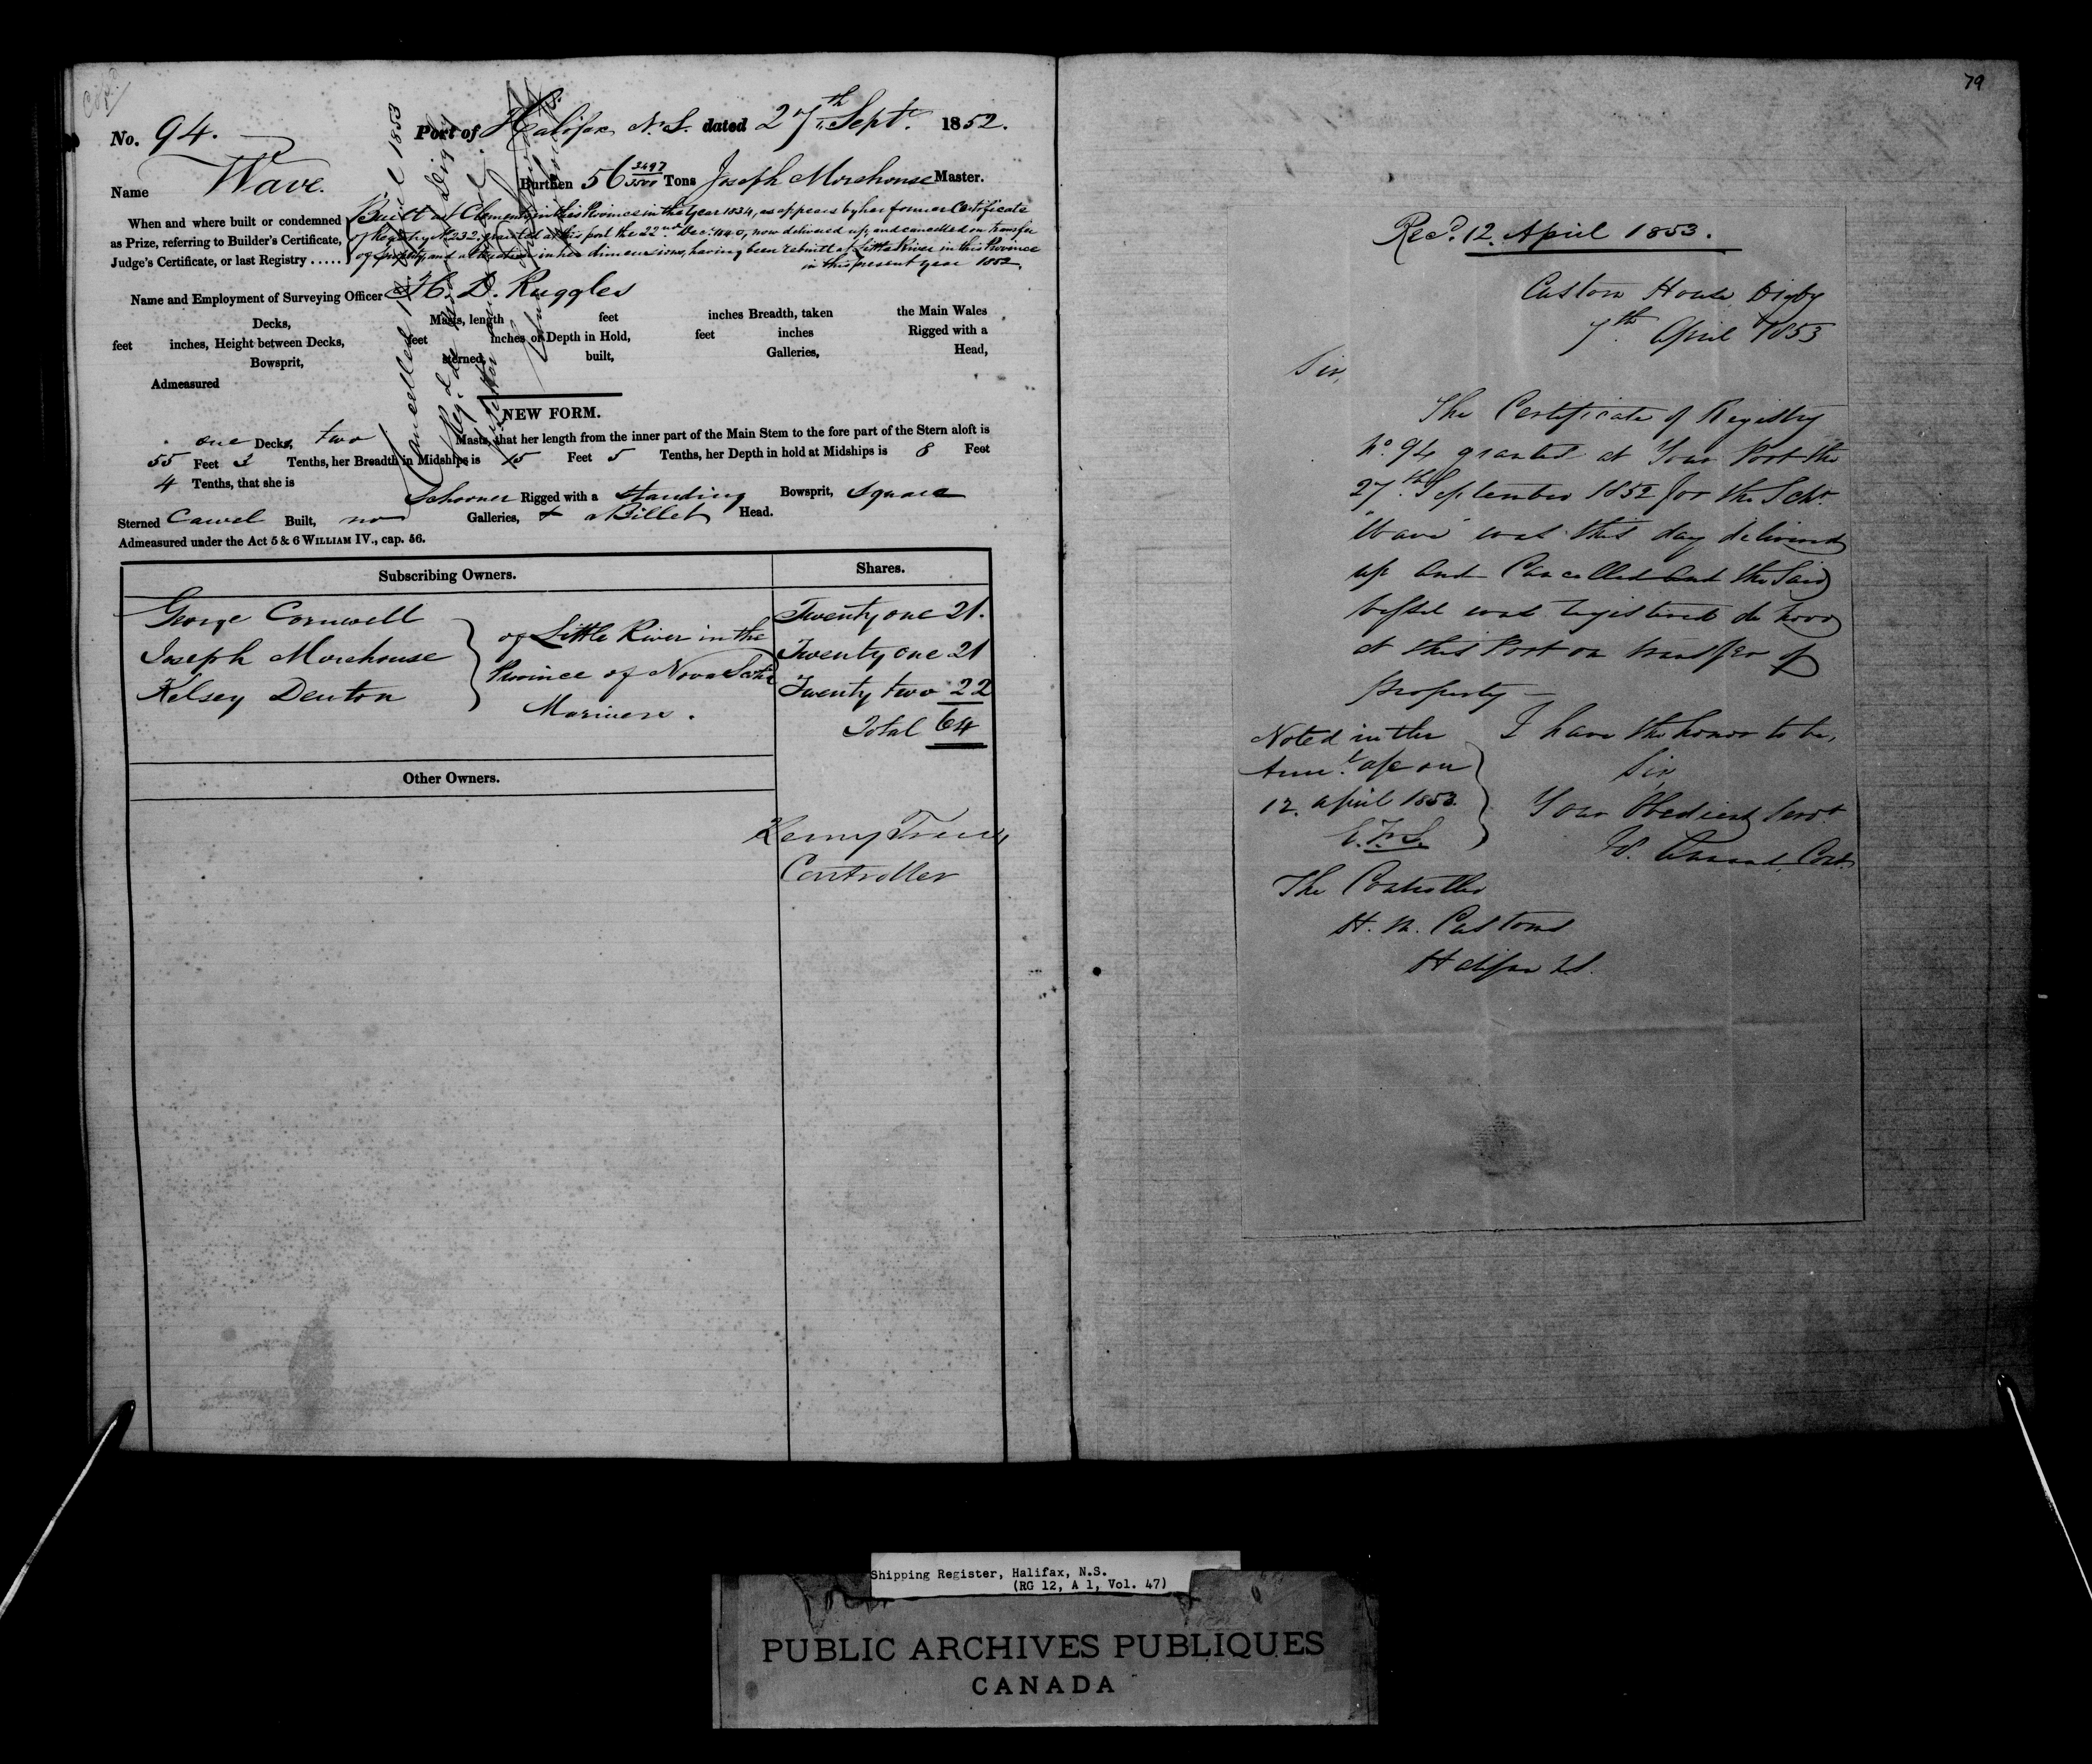 No. 94. Port of Halifax N.S. dated 27th Sept. 1852.
Name Wave. Burthen 56 3497/3500 Tons Joseph Morehouse Master.
When and where built or condemned
as Prize, referring to Builder's Certificate,
Judge's Certificate, or last Registry .....
Built at Clements in this Province in the Year 1834, as appears by her former Certificate
of Registry No 232, granted at this port the 22nd Decr. 1840, now delivered up and cancelled on transfer
of property and alteration in her dimensions, having been rebuilt at Little River in this Province
in this present year 1852.
Name and Employment of Surveying Officer H. D. Ruggles
Decks, Masts, length feet inches Breadth, taken the Main Wales
feet inches, Height between Decks, feet inches or Depth in Hold, feet inches Rigged with a
Bowsprit, sterned, built, Galleries, Head,
Admeasured
Cancelled April 1853
NEW FORM.
one Decks, two Masts, that her length from the inner part of the Main Stem to the fore part of the Stern aloft is
55 Feet 3 Tenths, her Breadth in Midships is 15 Feet 5 Tenths, her Depth in hold at Midships is 8 Feet
4 Tenths, that she is
Schooner Rigged with a standing Bowsprit, square
Sterned Carvel Built, no Galleries, & a Billet Head.
Admeasured under the Act 5 & 6 WILLIAM IV., cap. 56.
Subscribing Owners. Shares.
George Cornwell Twenty one 21.
Joseph Morehouse Twenty one 21
Kelsey Denton Twenty two 22
of Little River in the
Province of Nova Scotia
Mariners.
Total 64
Other Owners.
Controller
79
Recd. 12. April 1853.
Custom House Digby
7th April 1853
Sir,
The Certificate of Registry
No. 94 granted at Your Port the
27th September 1852 for the Schr
"Wave" was this day delivered
up and Cancelled and the Said
Vessel was registered de novo
at this Port on transfer of
property —
I have the honor to be,
Sir
Your Obedient Servt
Noted in the
on
12. April 1853.
The Controller
H. M. Customs
Halifax N.S.
Shipping Register, Halifax, N.S.
(RG 12, A 1, Vol. 47)
PUBLIC ARCHIVES PUBLIQUES
CANADA